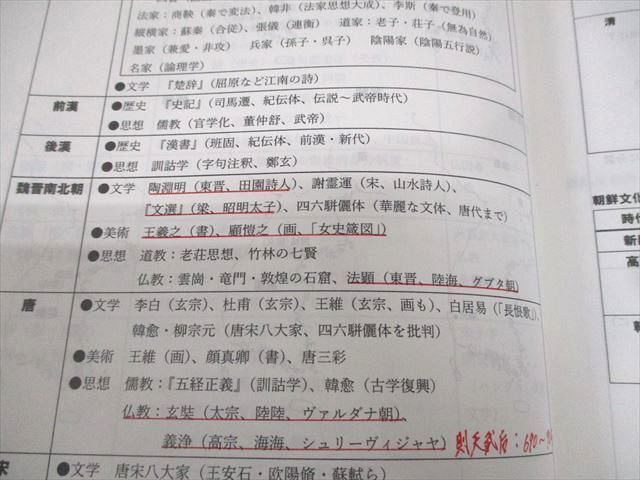 法家：商鞅（秦で変法）、韓非（法家思想大成）、李斯（秦で登用）
縦横家：蘇秦（合従）、張儀（連衡）　道家：老子・荘子（無為自然）
墨家（兼愛・非攻）　兵家（孫子・呉子）　陰陽家（陰陽五行説）
名家（論理学）
●文学　『楚辞』（屈原など江南の詩）
前漢
●歴史　『史記』（司馬遷、紀伝体、伝説～武帝時代）
●思想　儒教（官学化、董仲舒、武帝）
後漢
●歴史　『漢書』（班固、紀伝体、前漢・新代）
●思想　訓詁学（字句注釈、鄭玄）
魏晋南北朝
●文学　陶淵明（東晋、田園詩人）、謝霊運（宋、山水詩人）、
『文選』（梁、昭明太子）、四六駢儷体（華麗な文体、唐代まで）
●美術　王羲之（書）、顧愷之（画、「女史箴図」）
●思想　道教：老荘思想、竹林の七賢
仏教：雲崗・竜門・敦煌の石窟、法顕（東晋、陸海、グプタ朝）
唐
●文学　李白（玄宗）、杜甫（玄宗）、王維（玄宗、画も）、白居易（「長恨歌」）、
韓愈・柳宗元（唐宋八大家、四六駢儷体を批判）
●美術　王維（画）、顔真卿（書）、唐三彩
●思想　儒教：『五経正義』（訓詁学）、韓愈（古学復興）
仏教：玄奘（太宗、陸陸、ヴァルダナ朝）、
義浄（高宗、海海、シュリーヴィジャヤ）　則天武后：690～
宋
●文学　唐宋八大家（王安石・欧陽脩・蘇軾ら）
清
朝鮮文化
時代